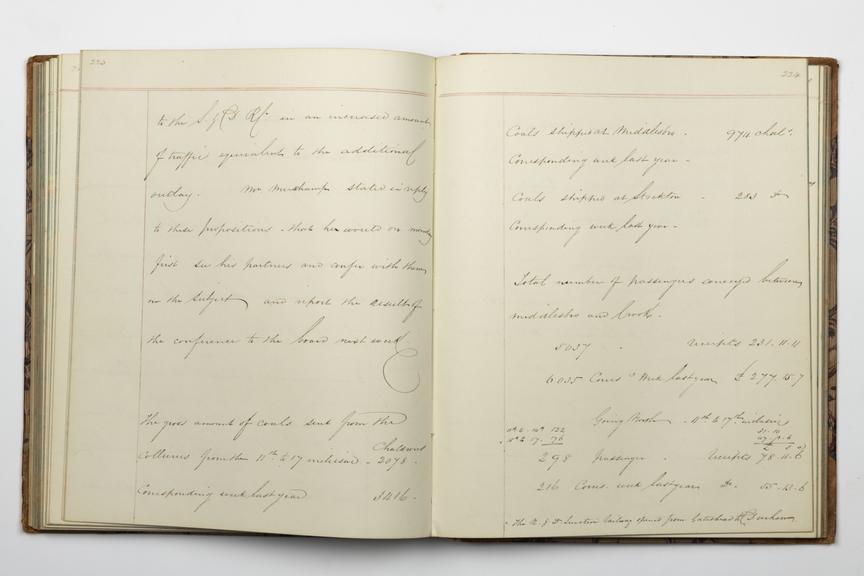 223
to the S. & D Rly in an increased amount
of traffic equivalent to the additional
outlay. Mr Muschamp stated in reply
to these propositions - that he would on monday
first see his partners and confer with them
on the Subject and report the result of
the conference to the board next week.
The gross amount of coals sent from the
Chaldrons
Collieries from the 11th to 17 inclusive - 2078 -
Corresponding week last year 3416 -
224
Coals shipped at Middlesbro - 974 Chals.
Corresponding week last year -
Coals shipped at Stockton - 283 Do
Corresponding week last year -
Total number of passengers conveyed between
middlesbro and Crook.
5037 - Receipts 231.11.11
6035 Corres g Week last year £ 277.15.7
Going North - 11th to 17th inclusive
122
17. 76
298 passengers - Receipts 78.11.6
216 Corres. week last year Do. 55.13.6
The N. & D. Junction Railway opened from Gateshead to Durham